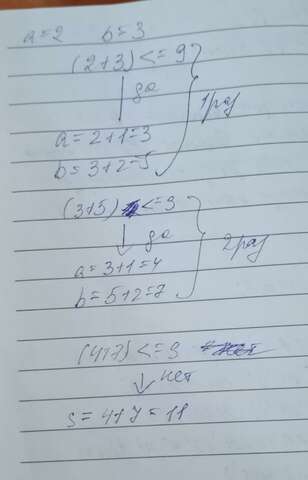 a=2 b=3
(2+3) <= 9
да
1 раз
a=2+1=3
b=3+2=5
(3+5) <=9
да
2 раз
a=3+1=4
b=5+2=7
(4+7) <= 9
нет
s=4+7=11